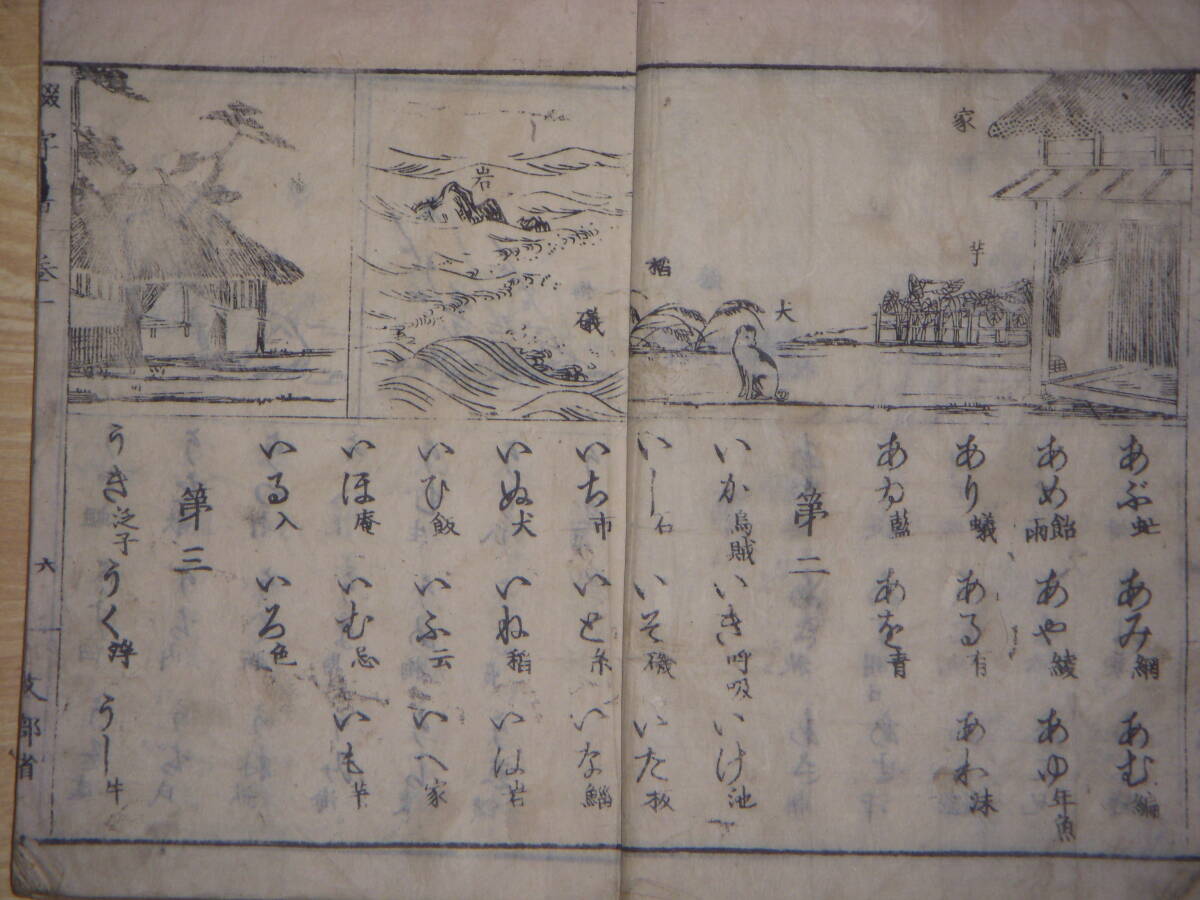 家
芋
犬
稲
あぶ 虻 あみ 網 あむ 編
あめ 飴 雨 あや 綾 あゆ 年魚
あり 蟻 ある 有 あわ 沫
あゐ 藍 あを 青
第二
いか 烏賊 いき 呼吸 いけ 池
いし 石 いそ 磯 いた 板
岩
磯
いち 市 いと 糸 いな 鯔
いぬ 犬 いね 稲 いは 岩
いひ 飯 いふ 云 いへ 家
いほ 庵 いむ 忌 いも 芋
いる 入 いろ 色
第三
うき 泛子 うく うし 牛
綴字 巻一
六
文部省